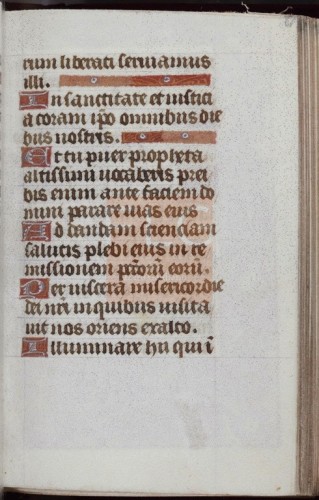 rum liberati seruiamus
illi.
In sanctitate et iustici
a coram ipo omnibus die
bus nostris.
Et tu puer propheta
altissimi uocaberis prei
bis enim ante faciem do
mini parare uias eius
Ad dandam scienciam
salutis plebi eius in re
missionem pctorū eorū.
Per uiscera misericordie
dei nrī in quibus uisita
uit nos oriens exalto.
Illuminare hiis qui ī